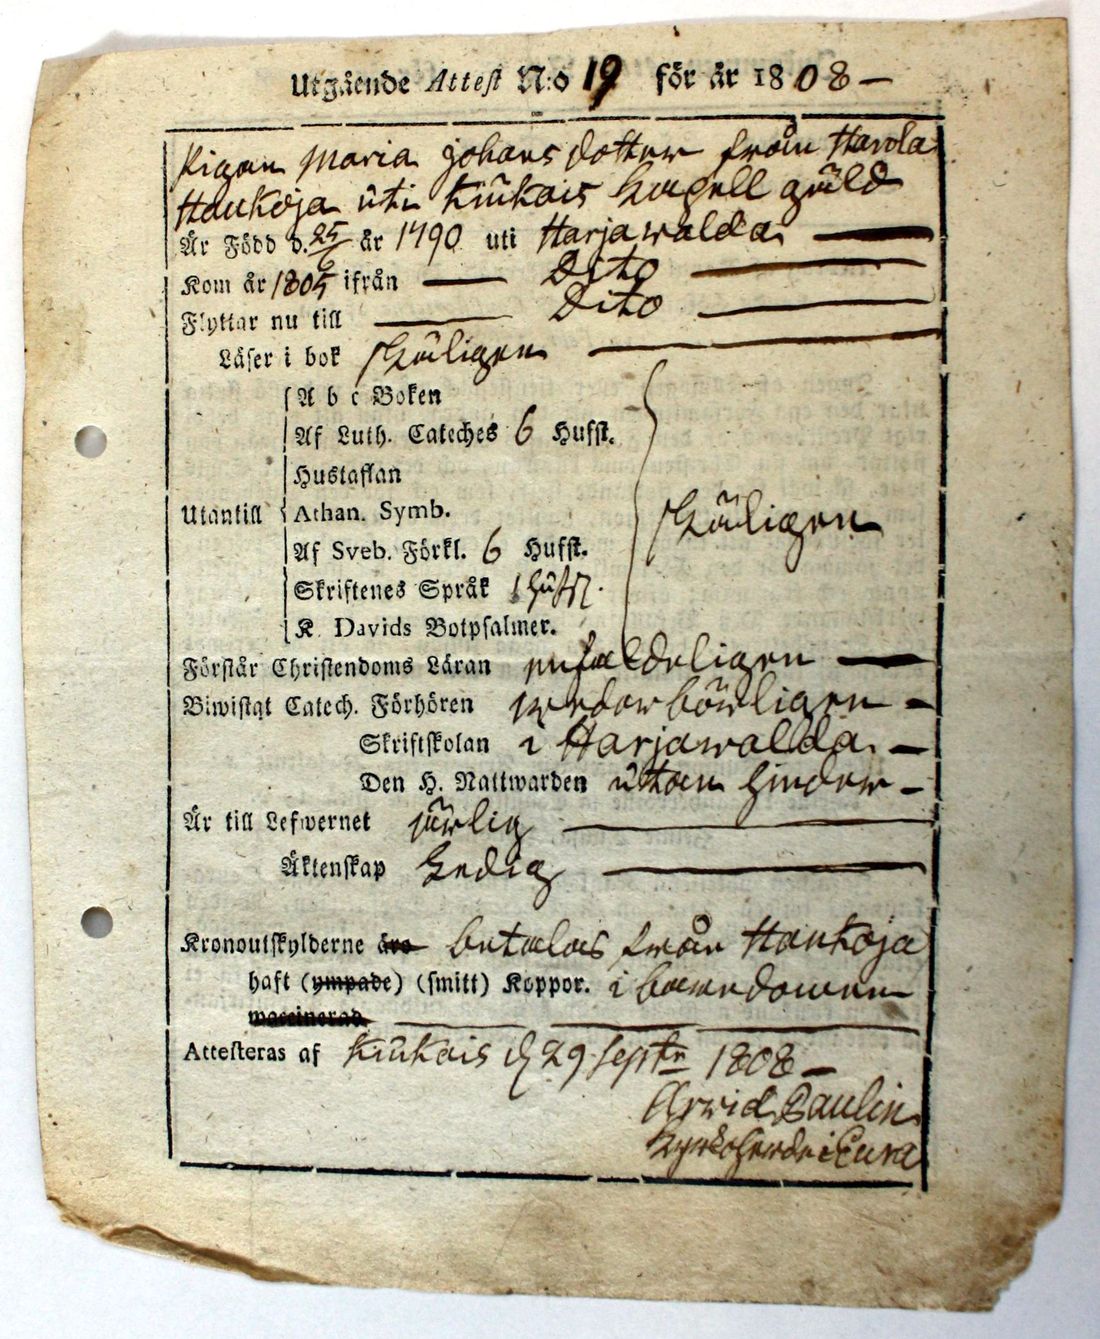 Utgående Attest N:o 19 för år 1808 —
Pigan Maria Johans dotter från Harola
Haukoja uti Kiukais Capell gäld
Är Född d. 25/6 år 1790 uti Harjawalda —
Kom år 1805 ifrån — Dito —
Flyttar nu till — Dito —
Läser i bok skäligen —
A b c Boken
Af Luth. Cateches 6 Hufst.
Hustaflan
Utantill Athan. Symb. skäligen
Af Sveb. Förkl. 6 Hufst.
Skriftenes Språk 1 Hufst.
K. Davids Botpsalmer.
Förstår Christendoms Läran enfaldeligen —
Biwistat Catech. Förhören wederbörligen —
Skriftskolan i Harjawalda —
Den H. Nattwarden utan hinder —
Är till Lefwernet ärlig —
Äktenskap Ledig —
Kronoutskylderne äro betalas från Haukoja
haft (ympade) (smitt) Koppor. i barndomen
waccinerad — — —
Attesteras af Kiukais d. 29 Septr 1808 —
Arvid Paulin
Kyrkoherde i Eura